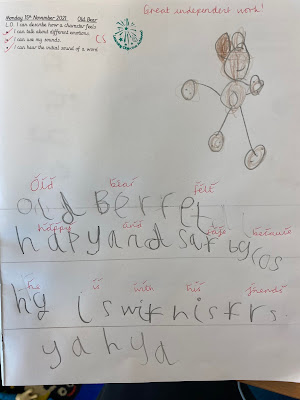 Great independent work!
Monday 15th November 2021 Old Bear
L.O. I can describe how a character feels
I can talk about different emotions.
I can use my sounds.
I can hear the initial sound of a word.
CS
Old bear felt
old Berfet
happy and safe because
hapy and saf bcos
he is with his friends
hy is wit his frs
yahya